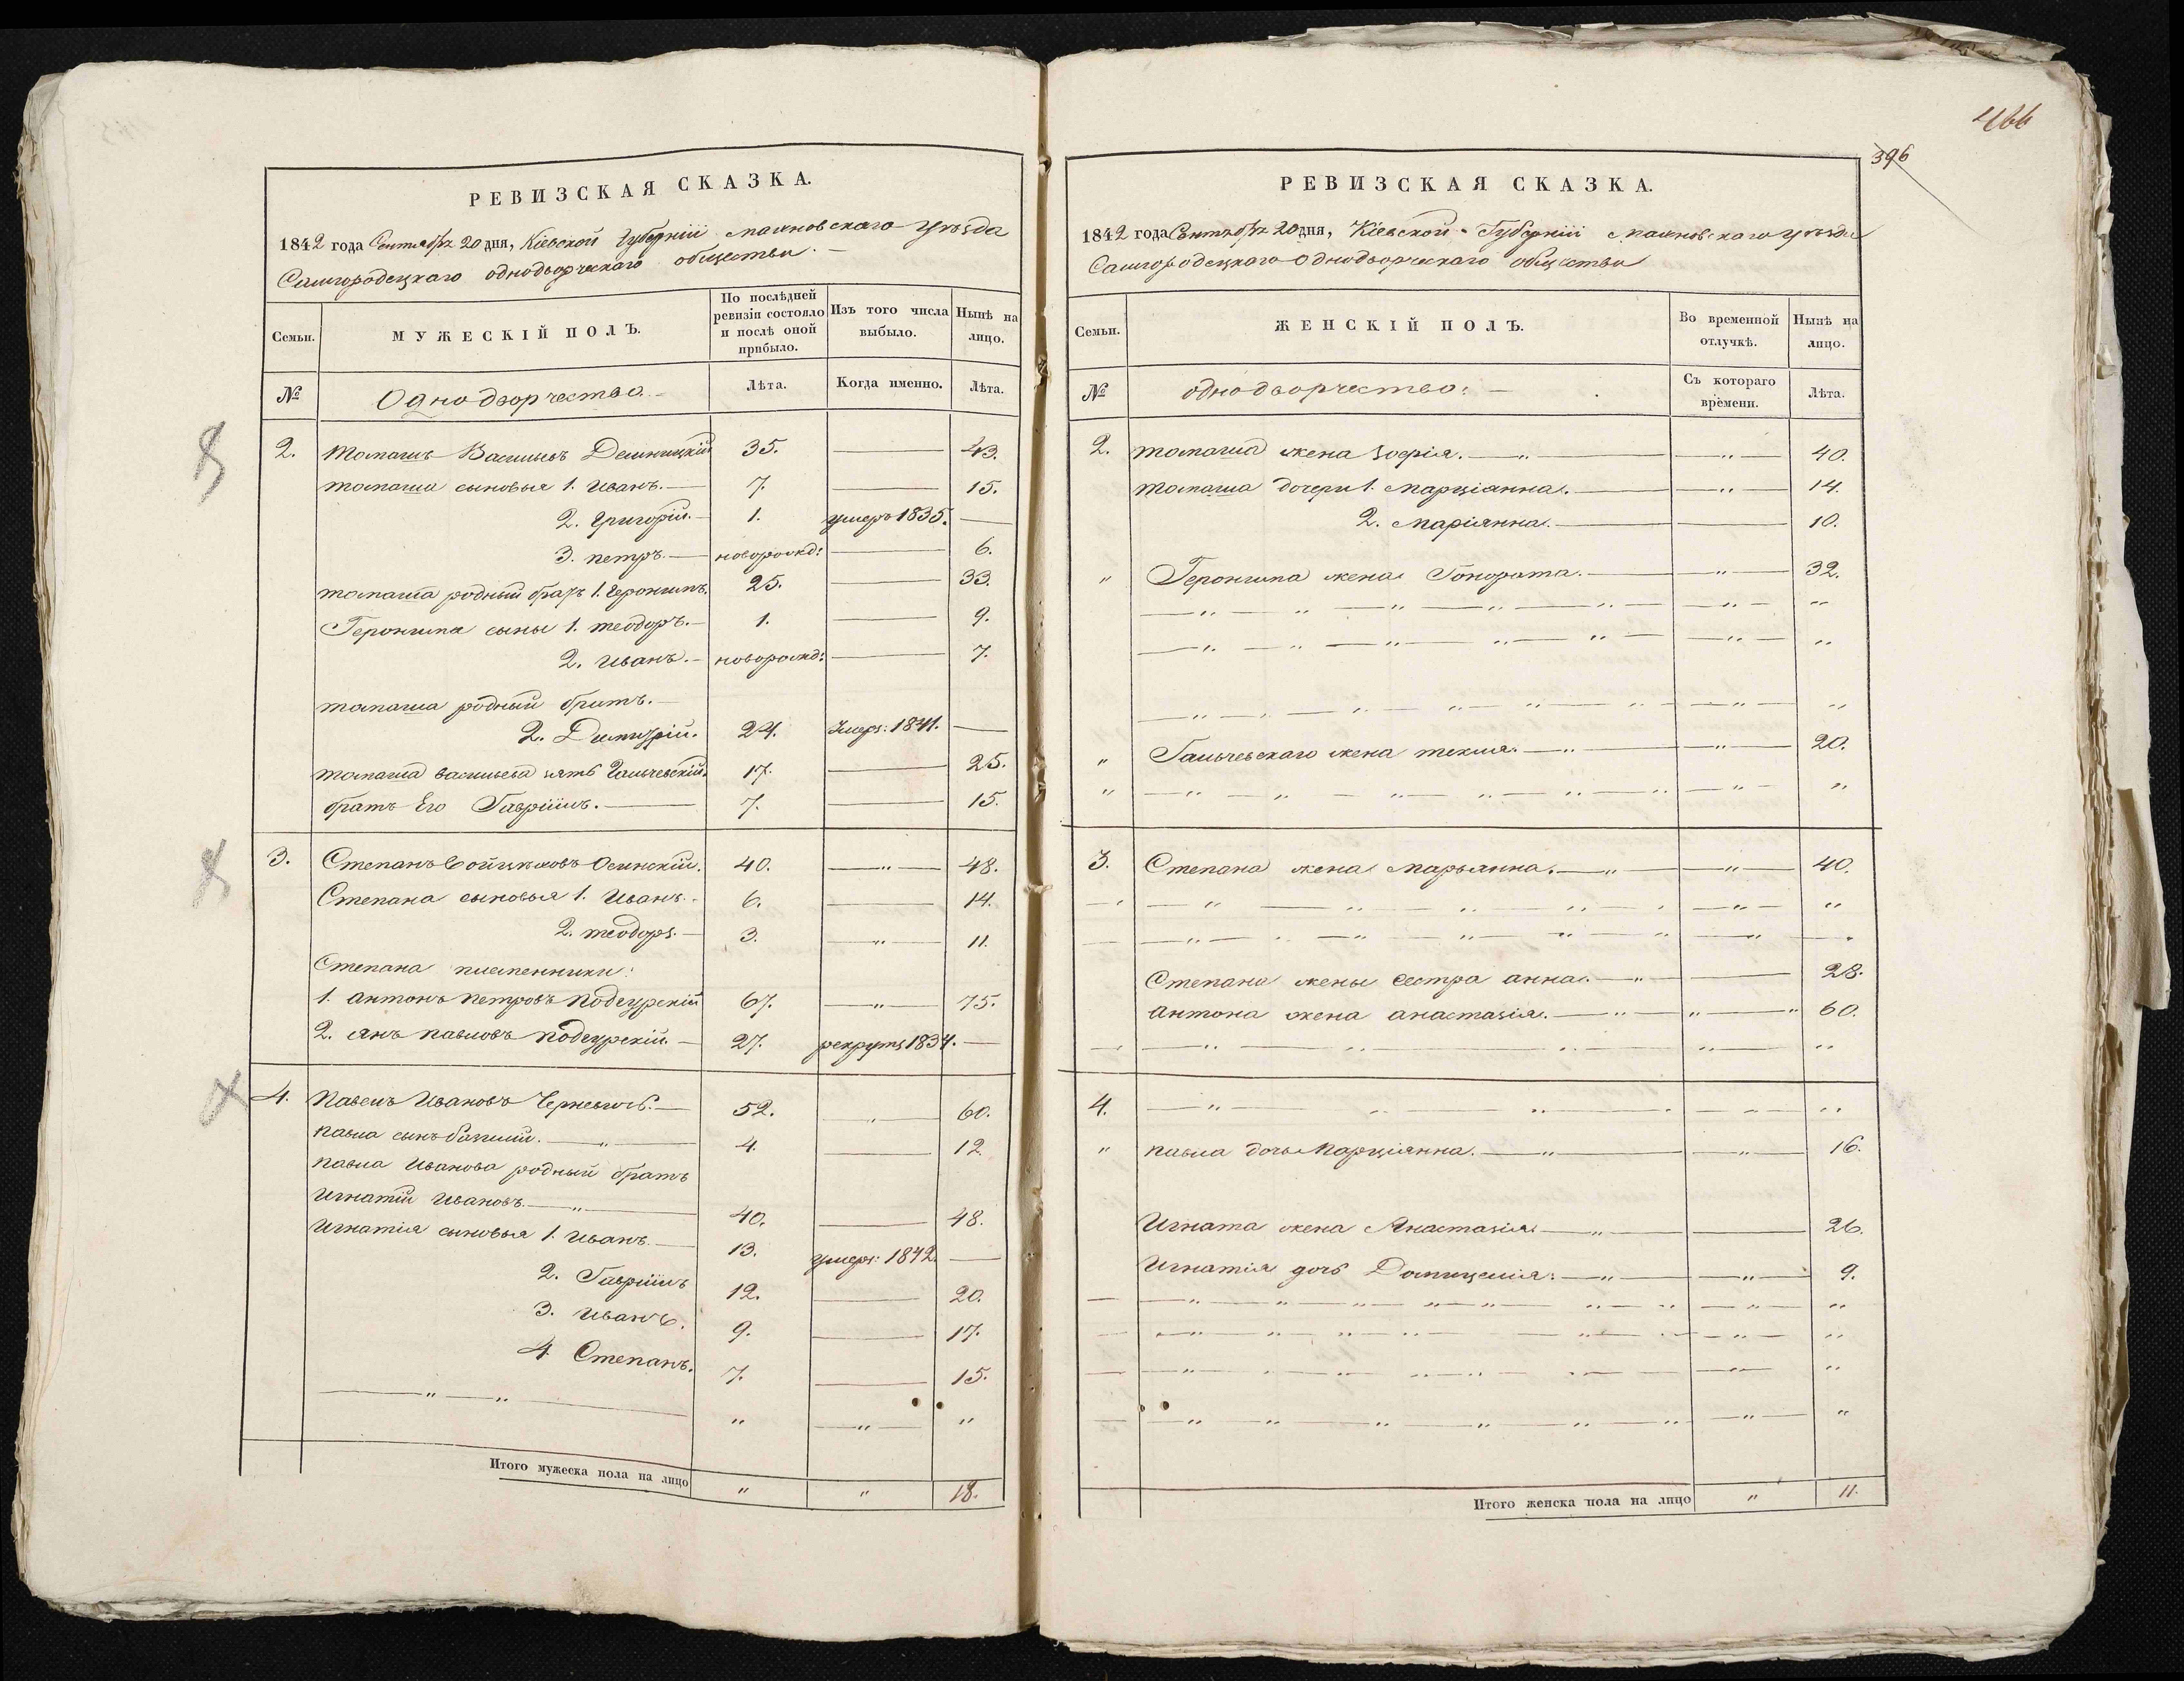 466
396
РЕВИЗСКАЯ СКАЗКА.
1842 года Сентября 20 дня, Кіевской Губерніи Махновскаго Уѣзда
Самгородецкаго однодворческаго общества
Семьи. МУЖЕСКІЙ ПОЛЪ. По послѣдней ревизіи состояло и послѣ оной прибыло. Изъ того числа выбыло. Нынѣ на лицо.
№ Однодворчества Лѣта. Когда именно. Лѣта.
2. Томашъ Васильевъ 35. — 43.
томаша сыновья 1. Иванъ. — 7. — 15.
2. Григорій. — 1. умеръ 1835. —
3. петръ. — новорожд: — 6.
томаша родный братъ 1. Геронимъ. 25. — 33.
Геронима сыны 1. теодоръ. — 1. — 9.
2. Иванъ. — новорожд: — 7.
томаша родный братъ. —
2. Димитрій. 24. Умеръ: 1841. —
томаша васильева зять Гальчевскій. 17. — 25.
братъ Его Гавріилъ. — 7. — 15.
3. Степанъ Осинскій. 40. — „ — 48.
Степана сыновья 1. Иванъ. 6. — 14.
2. теодоръ. — 3. — „ — 11.
Степана племенники:
1. антонъ петровъ подгурскій 67. — „ — 75.
2. янъ павловъ подгурскій. — 27. рекрутъ 1834. —
4. Павелъ Ивановъ — 52. — „ — 60.
павла сынъ — „ — 4. — 12
павла Иванова родный братъ
Игнатій Ивановъ. — „ — 40. — 48.
Игнатія сыновья 1. Иванъ. — 13. умеръ: 1842. —
2. Гавріилъ 12. — 20.
3. Иванъ. 9. — 17.
4. Степанъ. 7. — 15.
— „ — „ — „ — „ — „
Итого мужеска пола на лицо „ „ 18.
РЕВИЗСКАЯ СКАЗКА.
1842 года Сентября 20 дня, Кіевской Губерніи Махновскаго уѣзда
Самгородецкаго Однодворческаго общества
Семьи. ЖЕНСКІЙ ПОЛЪ. Во временной отлучкѣ. Нынѣ на лицо.
№ однодворчество: — Съ котораго времени. Лѣта.
2. томаша жена зофія. — „ — — „ — 40.
томаша дочери 1. марціанна. — — „ — 14.
2. маріанна. — — 10.
„ Геронима жена Гонората. — — „ — 32.
„ Гальчевскаго жена текля. — „ — — „ — 20.
3. Степана жена марьянна. — „ — — „ — 40.
Степана жены сестра анна. — „ — — 28.
антона жена анастазія. — „ — „ — „ 60.
4. — „ —
„ павла дочь Марціянна. — „ — — „ — 16.
Игната жена Анастазія — „ — — 26.
Игнатія дочь Домицелія: — „ — — „ — 9.
Итого женска пола на лицо „ 11.